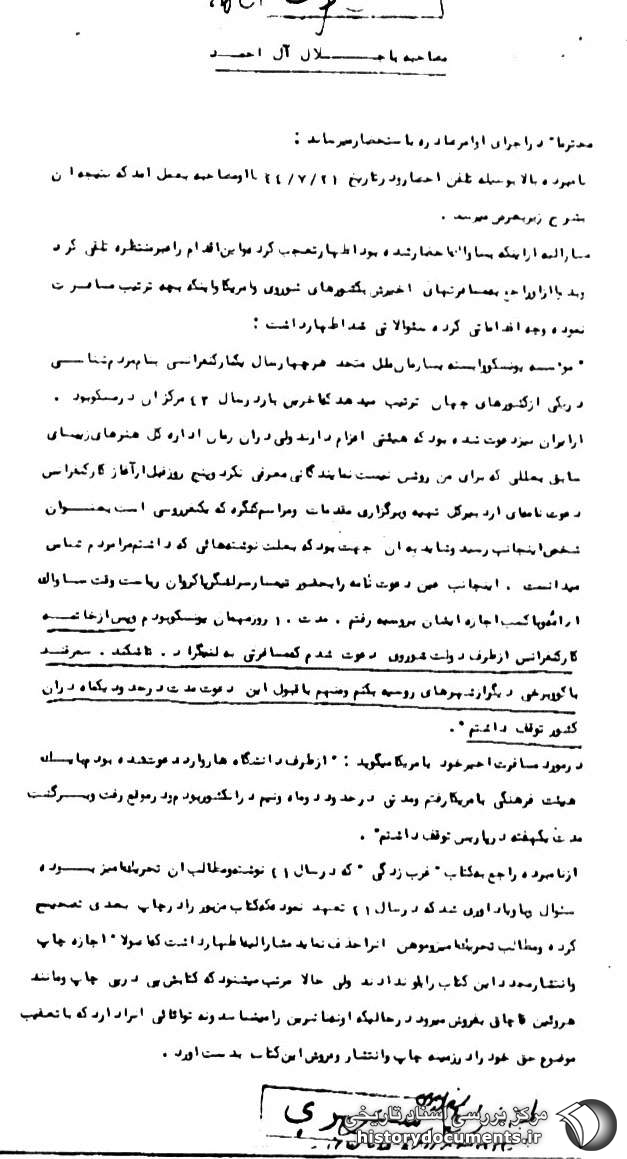 مصاحبه با جـــلال آل احمـــد
محترما" در اجرای اوامر صادره با ستحضار میرساند :
نامبرده بالا بوسیله تلفن احضار و در تاریخ ۴۴/۷/۲۱ با او مصاحبه بعمل آمد که نتیجه آن
بشرح زیر بعرض میرسد .
مشارالیه از اینکه بساواک احضار شده بود اظهار تعجب کرده و این اقدام را غیر منتظره تلقی کرد
وبدوا از او راجع به مسافرتهای اخیرش بکشورهای شوروی و امریکا و اینکه بچه ترتیب مسافرت
نموده وچه اقداماتی کرده سئوالاتی شد اظهار داشت :
" موسسه یونسکو وابسته بسازمان ملل متحد هر چهار سال یکبار کنفرانسی بنام مردم شناسی
در یکی از کشورهای جهان ترتیب میدهد که آخرین بار در سال ۴۳ مرکز آن در مسکو بود .
از ایران نیز دعوت شده بود که هیئتی اعزام دارند ولی در آن زمان اداره کل هنرهای زیبای
سابق بعللی که برای من روشن نیست نمایندگانی معرفی نکرد و پنج روز قبل از آغاز کار کنفرانس
دعوت نامه‌ای از دبیر کل تهیه و برگزاری مقدمات و مراسم کنگره که یکنفر روسی است بعنـــوان
شخص اینجانب رسید و شاید به آن جهت بود که بعلت نوشته‌هائی که داشتم مرا مردم شناس
میدانست . اینجانب عین دعوت نامه را بحضور تیمسار سرلشگر پاکروان ریاست وقت ساواک
ارائه و با کسب اجازه ایشان بروسیه رفتم . مدت ۱۰ روز مهمان یونسکو بودم و پس از خاتمـــه
کار کنفرانس از طرف دولت شوروی دعوت شدم که مسافرتی به لنینگراد . تاشکند . سمرقنـــد
باکو و برخی دیگر از شهرهای روسیه بکنم و منهم با قبول این دعوت مدت در حدود یکماه در آن
کشور توقف داشتم " .
در مورد مسافرت اخیر خود بامریکا میگوید : " از طرف دانشگاه هاروارد دعوت شده بودم با یک
هیئت فرهنگی بامریکا رفتم و مدتی در حدود دوماه ونیم در آنکشور بودم و در موقع رفت و بـــرگشت
مدت یکهفته در پاریس توقف داشتم" .
از نامبرده راجع به کتاب " غرب زدگی " که در سال ۴۱ نوشته و مطالب آن تحریک‌آمیز بـــوده
سئوال و باو یادآوری شد که در سال ۴۱ تعهد نموده که کتاب مزبور را در چاپ بعدی تصحیح
کرده و مطالب تحریک‌آمیز و موهن آنرا حذف نماید مشارالیه اظهار داشت که اصولا" اجازه چاپ
وانتشار مجدد این کتاب را باو ندادند ولی حالا مرتب میشنود که کتابش پی در پی چاپ و مانند
هروئین قاچاقی بفروش میرود در حالیکه او نه ناشرین را میشناسد و نه توانائی آنرا دارد که با تعقیب
موضوع حق خود را در زمینه چاپ و انتشار و فروش این کتاب بدست آورد .
مرکز بررسی اسناد تاریخی
historydocuments.ir